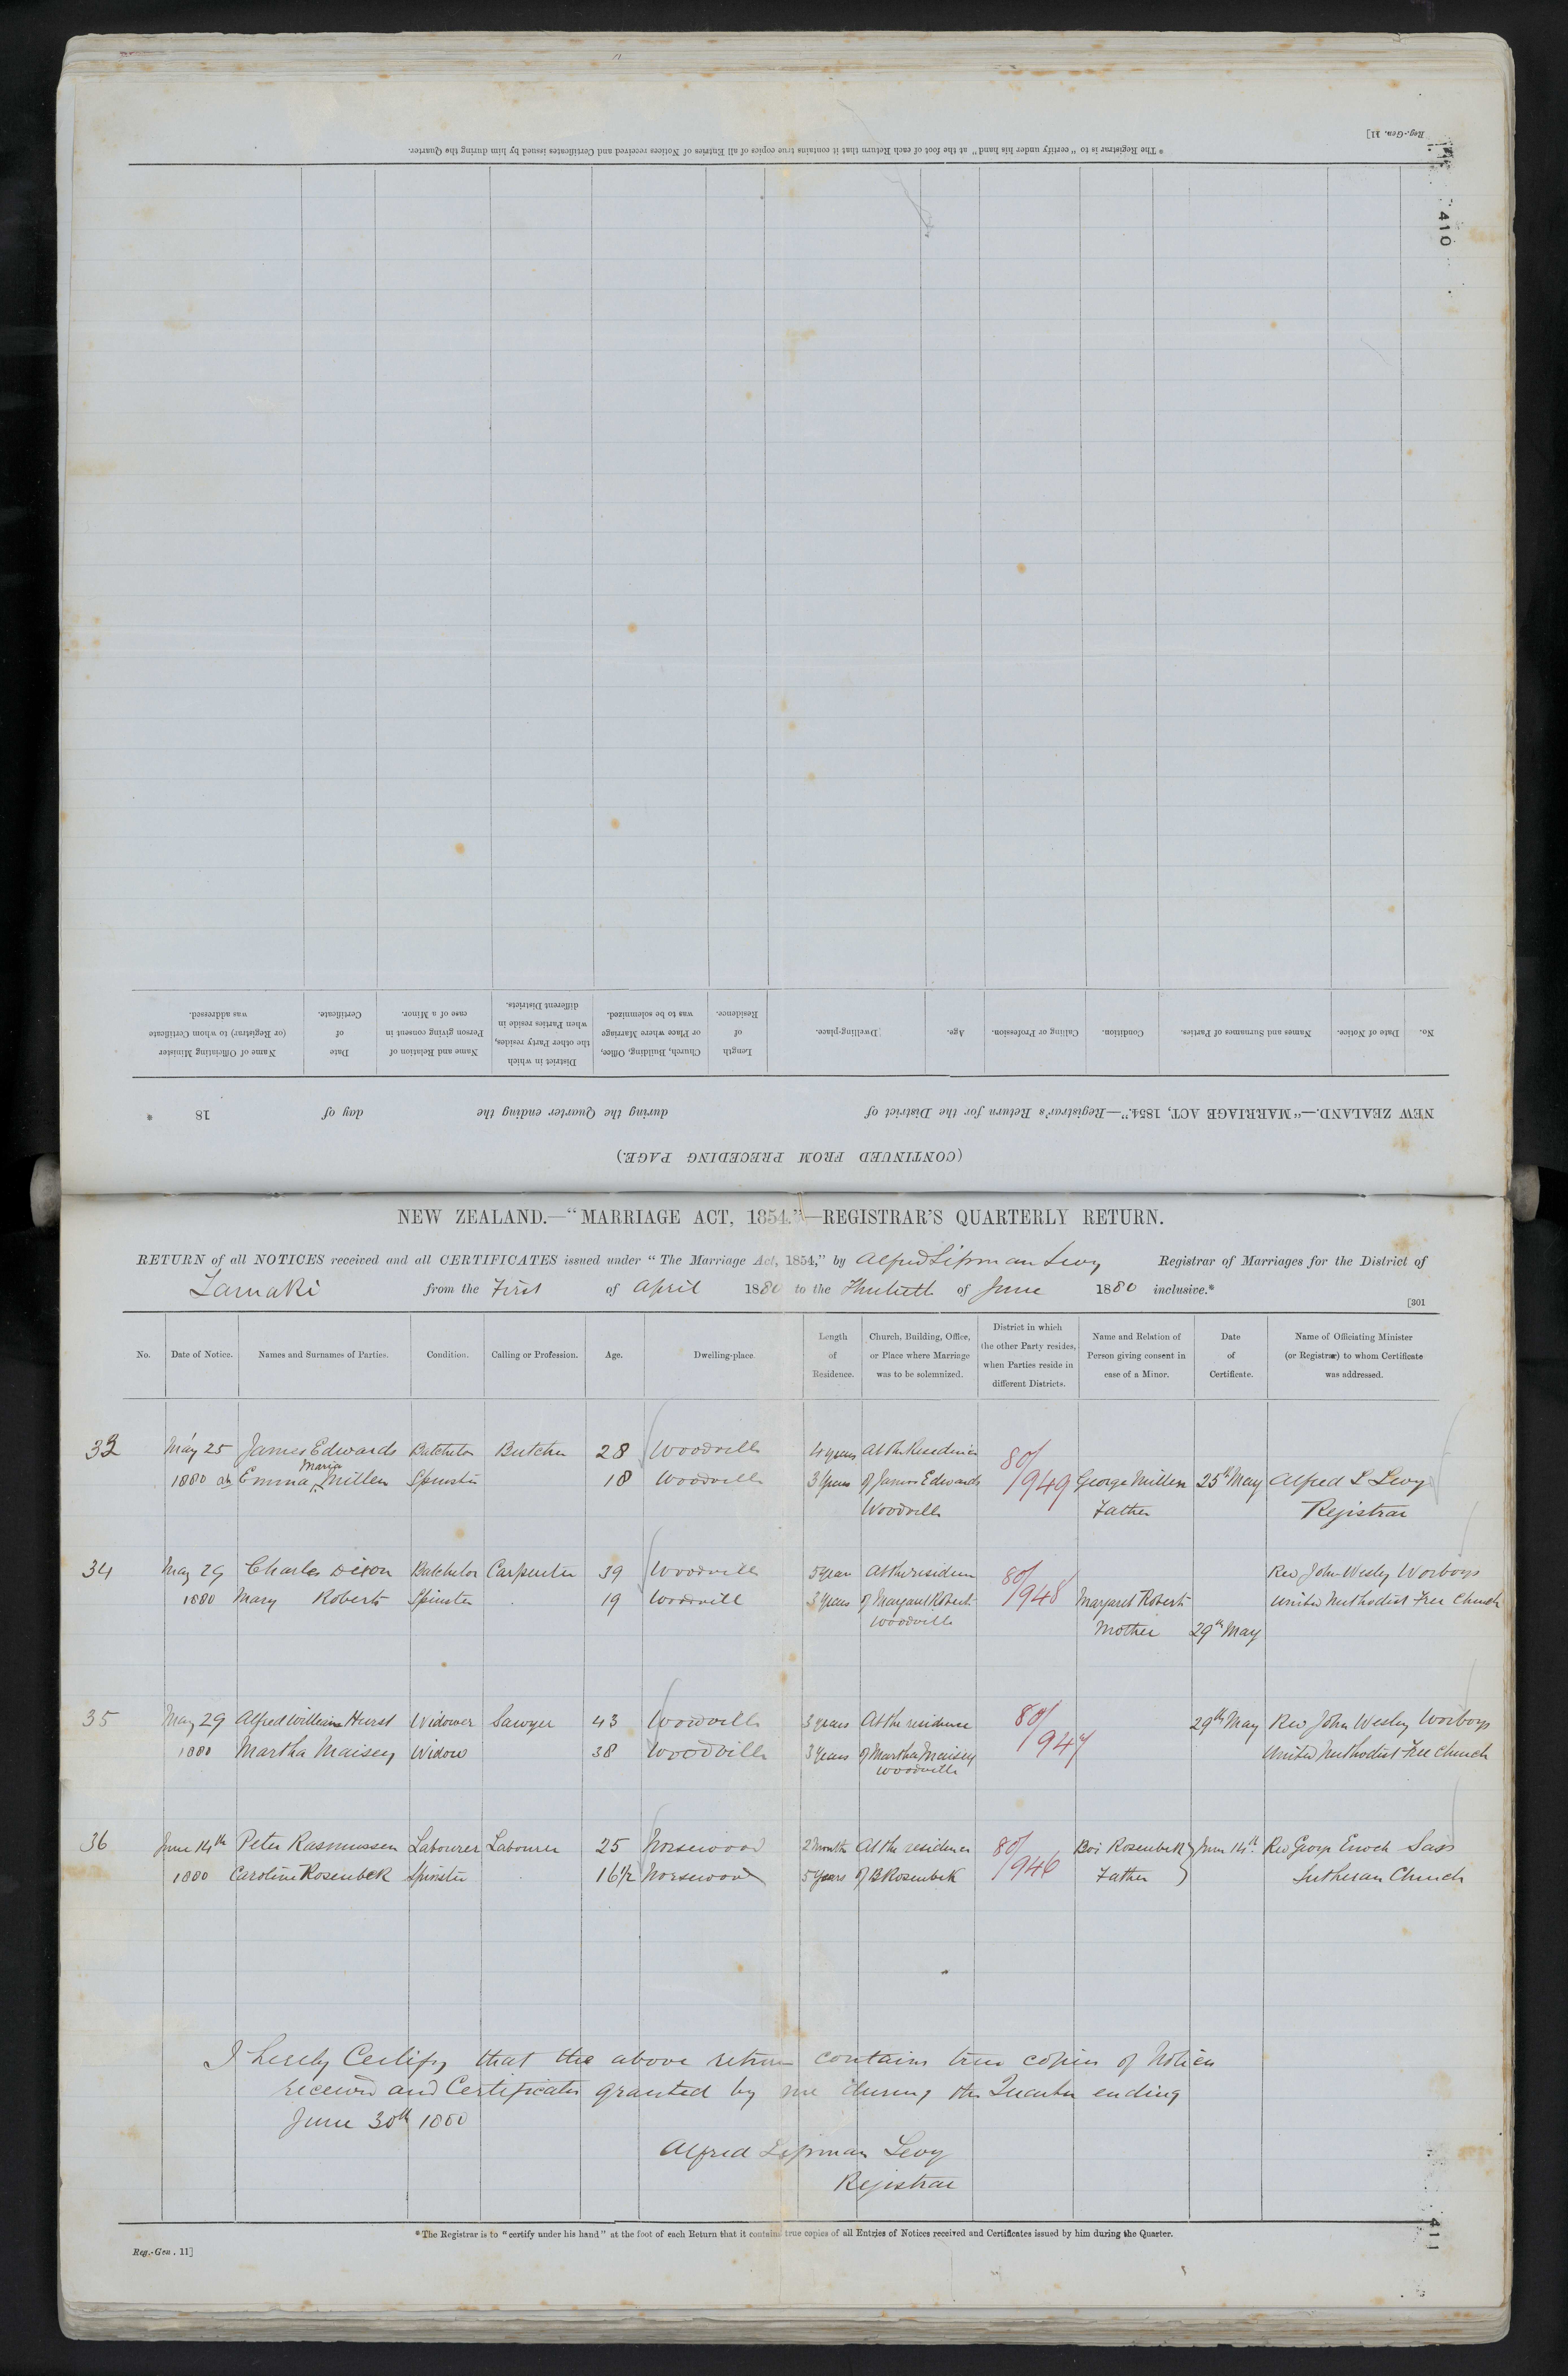 Reg.-Gen. 11]
* The Registrar is to "certify under his hand" at the foot of each Return that it contains true copies of all Entries of Notices received and Certificates issued by him during the Quarter.
410
No.
Date of Notice.
Names and Surnames of Parties.
Condition.
Calling or Profession.
Age.
Dwelling-place.
Length of Residence.
Church, Building, Office, or Place where Marriage was to be solemnized.
District in which the other Party resides, when Parties reside in different Districts.
Name and Relation of Person giving consent in case of a Minor.
Date of Certificate.
Name of Officiating Minister (or Registrar) to whom Certificate was addressed.
NEW ZEALAND.—"MARRIAGE ACT, 1854."—Registrar's Return for the District of during the Quarter ending the day of 18 *
(CONTINUED FROM PRECEDING PAGE.)
NEW ZEALAND.—"MARRIAGE ACT, 1854."—REGISTRAR'S QUARTERLY RETURN.
RETURN of all NOTICES received and all CERTIFICATES issued under "The Marriage Act, 1854," by Alfred Lipman Levy Registrar of Marriages for the District of
Tamaki from the First of April 1880 to the Thirtieth of June 1880 inclusive.*
[301
No.
Date of Notice.
Names and Surnames of Parties.
Condition.
Calling or Profession.
Age.
Dwelling-place.
Length of Residence.
Church, Building, Office, or Place where Marriage was to be solemnized.
District in which the other Party resides, when Parties reside in different Districts.
Name and Relation of Person giving consent in case of a Minor.
Date of Certificate.
Name of Officiating Minister (or Registrar) to whom Certificate was addressed.
33 May 25 James Edwards Batchelor Butcher 28 Woodville 4 years At the Residence 80/
Maria
1880 Emma Millen Spinster 18 Woodville 3 Years of James Edwards 949 George Millen 25th May Alfred L Levy
Woodville Father Registrar
34 May 29 Charles Dixon Batchelor Carpenter 39 Woodville 5 Years At the residence 80/ Rev John Wesley Worboys
1880 Mary Roberts Spinster 19 Woodville 3 Years of Margaret Roberts 948 Margaret Roberts United Methodist Free Church
Woodville Mother 29th May
35 May 29 Alfred William Hurst Widower Sawyer 43 Woodville 3 years At the residence 80/ 29th May Rev John Wesley Worboys
1880 Martha Maisey Widow 38 Woodville 3 Years of Martha Maisey 947 United Methodist Free Church
Woodville
36 June 14th Peter Rasmussen Labourer Labourer 25 Norsewood 2 Months At the residence 80/ Boi Rosenbek June 14th Rev George Enoch Sass
1880 Caroline Rosenbek Spinster 16½ Norsewood 5 Years of B Rosenbek 946 Father Lutheran Church
I hereby Certify that the above return contains true copies of Notices
received and Certificates granted by me during the Quarter ending
June 30th 1880
Alfred Lipman Levy
Registrar
* The Registrar is to "certify under his hand" at the foot of each Return that it contains true copies of all Entries of Notices received and Certificates issued by him during the Quarter.
Reg.-Gen. 11]
411